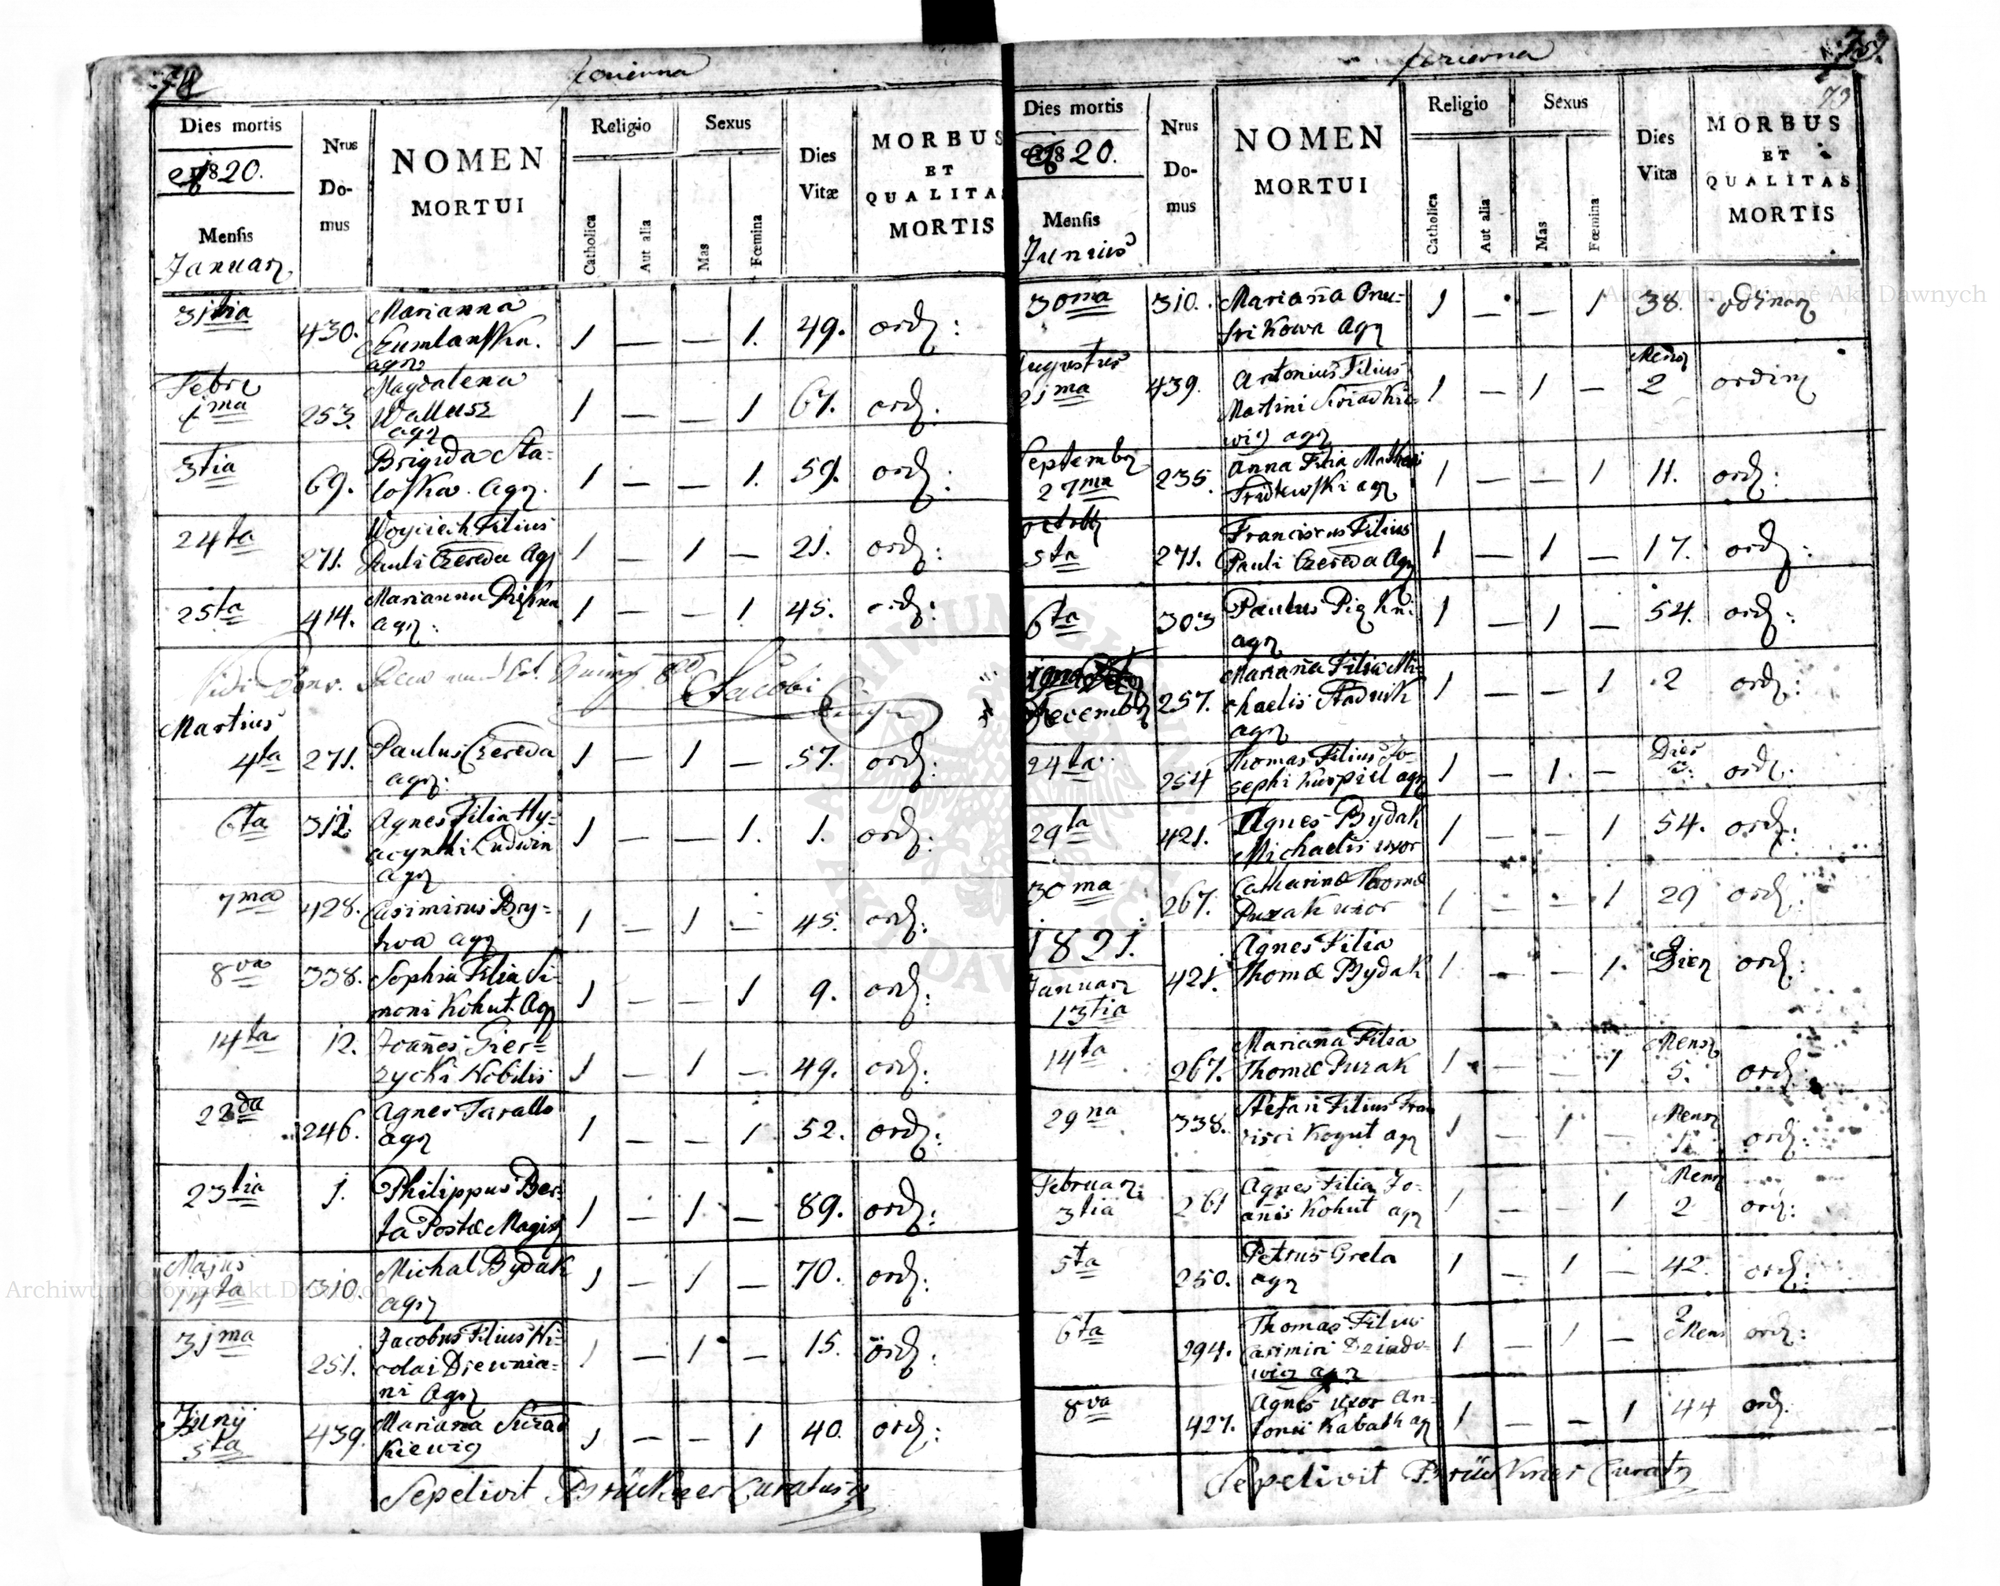 74
Dies mortis
1820.
Mensis
Januar
Nrus
Do-
mus
NOMEN
MORTUI
Religio
Catholica
Aut alia
Sexus
Mas
Fœmina
Dies
Vitæ
MORBUS
ET
QUALITAS
MORTIS
31
430.
Marianna
agr
1 — — 1. 49. ord:
Febr
1ma
253.
Magdalena
Wallusz
agr
1 — — 1 67. ord.
3tia
69.
Brigida Sta-
loska. Agr.
1 — — 1. 59. ord:
24ta
271.
Woyciech Filius
Pauli Czereda Agr
1 — 1 — 21. ord:
25ta
414.
Marianna
agr:
1 — — 1 45. ord:
Jacobi
Martius
4ta
271.
Paulus Czereda
agr:
1 — 1 — 57. ord:
6ta
312.
Agnes Filia Hy-
acynthi Ludwin
agr
1 — — 1. 1. ord:
7ma
428.
Casimirus Bry-
agr
1 — 1 — 45. ord:
8va
338.
Sophia Filia Si-
moni Kohut Agr
1 — — 1 9. ord:
14ta
12.
Joañes Gier-
zycki Nobilis
1 — 1 — 49. ord:
22da
246.
Agnes Taralło
agr
1 — — 1 52. ord:
23tia
1.
Philippus Ber-
ta Postæ Magis
1 — 1 — 89. ord:
Majus
14ta
310.
Michal Bydak
agr
1 — 1 — 70. ord:
31ma
251.
Jacobus Filius Ni-
colai Drewnia-
ni Agr
1 — 1 — 15. ord:
Junij
5ta
439.
Mariana
kiewicz
1 — — 1 40. ord:
Sepelivit Brückner Curatus
75.
73
Dies mortis
1820.
Mensis
Junius
Nrus
Do-
mus
NOMEN
MORTUI
Religio
Catholica
Aut alia
Sexus
Mas
Fœmina
Dies
Vitæ
MORBUS
ET
QUALITAS
MORTIS
30ma
310.
Mariaña Onu-
frikowa Agr
1 — — 1 38. ordinar
Augustus
21ma
439.
Antonius Filius
Martini
wicz agr
1 — 1 — Mens 2 ordinr
Septembr
27ma
235.
Anna Filia Mathei
agr
1 — — 1 11. ord:
5ta
271.
Franciscus Filius
Pauli Czereda Agr
1 — 1 — 17. ord:
6ta
303
Paulus
agr
1 — 1 — 54. ord:
Decembr
257.
Mariaña Filia Mi-
chaelis Stadnik
agr
1 — — 1 2 ord:
24ta
254
Thomas Filius Jo-
sephi Kurpiel agr
1 — 1. — Dies ord:
29ta
421.
Agnes Bydak
Michaelis uxor
1 — — 1 54. ord:
30ma
267.
Catharina Thomæ
Puzak uxor
1 — — 1 29 ord.
1821.
Januar
13tia
421.
Agnes Filia
Thomæ Bydak
1 — — 1. Dier ord:
14ta
267.
Mariana Filia
Thomæ Puzak
1 — — 1 Mens 5. ord:
29na
338.
Stefan Filius Fran
cisci Kogut agr
1 — 1 — Mens 1. ord:
Februar:
3tia
261
Agnes Filia Jo-
añis Kohut agr
1 — — 1 Mens 2 ord:
5ta
250.
Petrus Greta
agr
1 — 1 — 42. ord:
6ta
294.
Thomas Filius
Casimiri Dziado-
wicz agr
1 — 1 — 2 Mens ord:
8va
427.
Agnes uxor An-
tonii Kabath agr
1 — — 1 44 ord.
Sepelivit Brückner Curatus
Archiwum Główne Akt Dawnych
Archiwum Główne Akt Dawnych